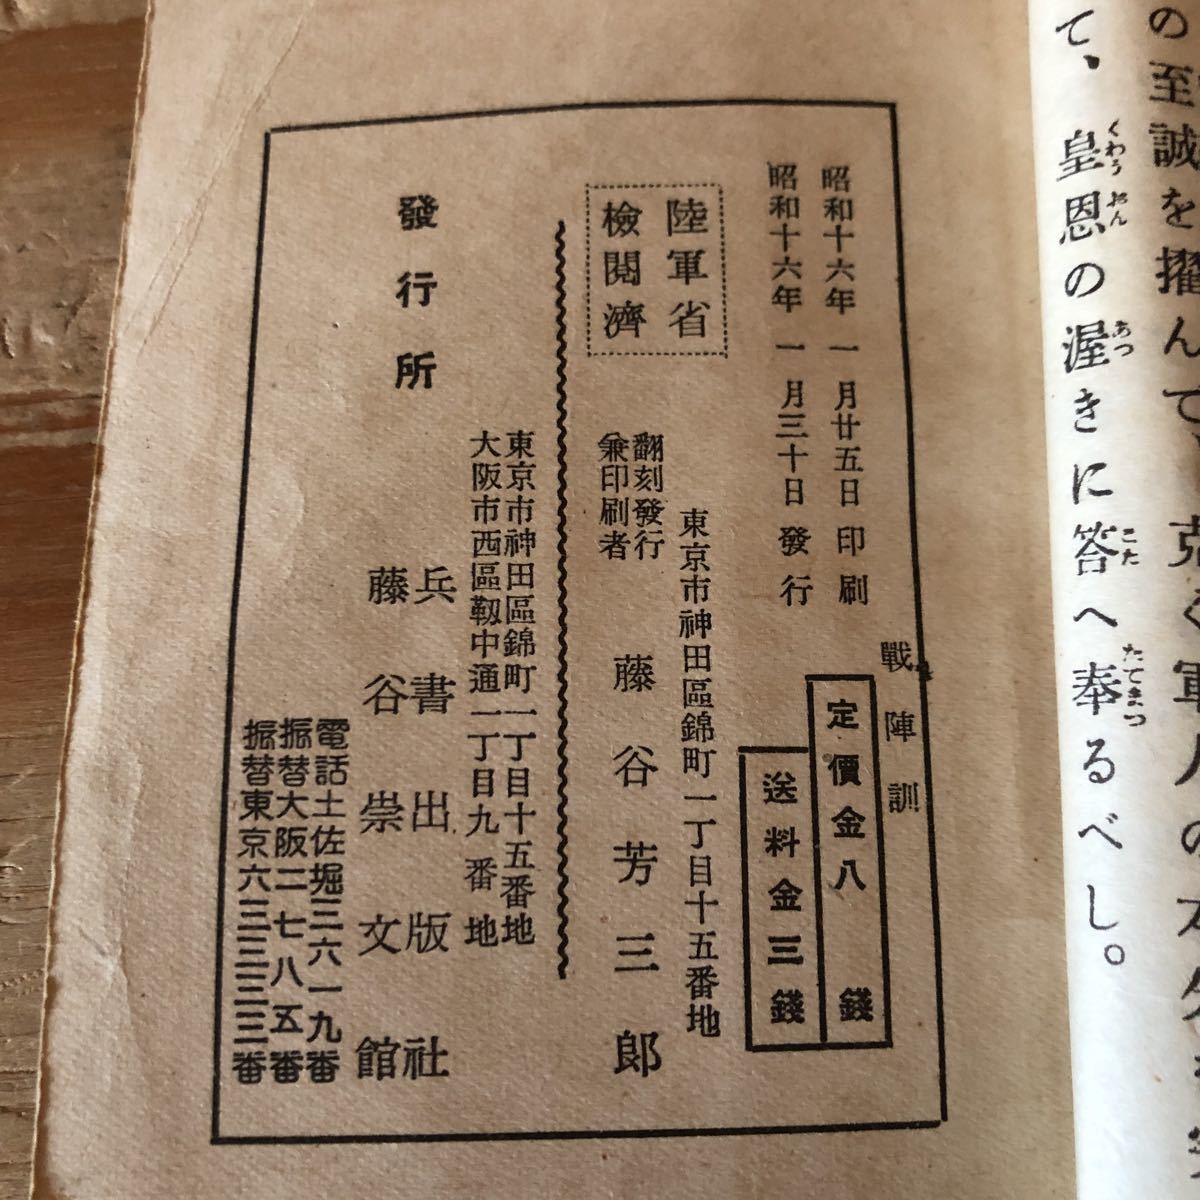 の至誠を擢んで
て、皇恩の渥きに答へ奉るべし。
くわうおん
あつ
こた
たてまつ
戰陣訓
定價金八錢
送料金三錢
昭和十六年一月廿五日印刷
昭和十六年一月三十日發行
陸軍省
檢閱濟
東京市神田區錦町一丁目十五番地
翻刻發行
兼印刷者
藤谷芳三郎
發行所
東京市神田區錦町一丁目十五番地
大阪市西區靱中通一丁目九番地
兵書出版社
藤谷崇文館
電話土佐堀三六一九番
振替大阪二七八五番
振替東京六三三三三番